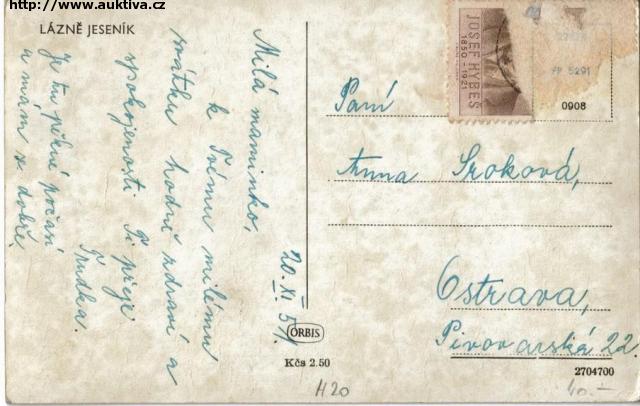 http://www.auktiva.cz
LÁZNĚ JESENÍK
20. XI. 51.
Milá maminko,
k Tvému milému
svátku hodně zdraví a
spokojenosti Ti přeje
Trudka.
Je tu pěkné počasí
a mám se dobře.
JOSEF HYBEŠ
1850-1921
FP 5291
0908
Paní
Anna Sroková,
Ostrava,
Pivovarská 22.
ORBIS
Kčs 2.50
2704700
H20
40.-